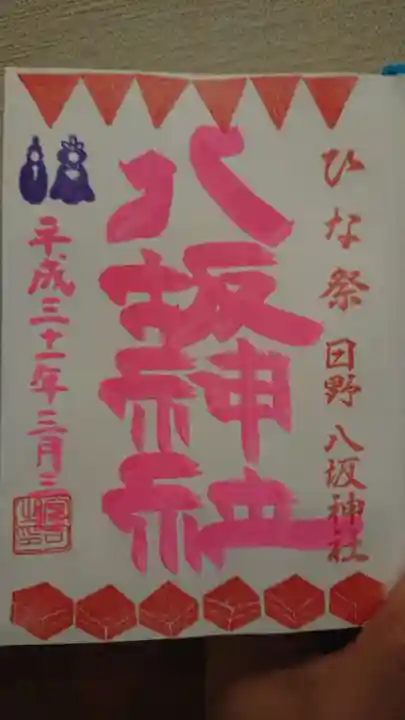 ひな祭 日野 八坂神社
八坂神社
平成三十一年三月三